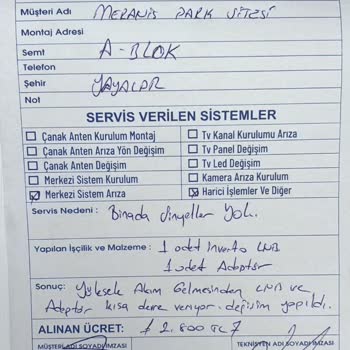 Müşteri Adı MERANİS PARK SİTESİ
Montaj Adresi
Semt A-BLOK
Telefon
Şehir YAYALAR
Not
SERVİS VERİLEN SİSTEMLER
Çanak Anten Kurulum Montaj
Çanak Anten Arıza Yön Değişim
Çanak Anten Değişim
Merkezi Sistem Kurulum
Merkezi Sistem Arıza
Tv Kanal Kurulumu Arıza
Tv Panel Değişim
Tv Led Değişim
Kamera Arıza Kurulum
Harici İşlemler Ve Diğer
Servis Nedeni : Binada Sinyeller Yok.
Yapılan İşçilik ve Malzeme : 1 adet Inverto LNB
1 adet Adaptör
Sonuç: Yüksek Akım Gelmesinden LNB ve
Adaptör kısa devre veriyor. değişim yapıldı.
ALINAN ÜCRET: 2.800 TL
MÜŞTERİ ADI SOYADI İMZASI
TEKNİSYEN ADI SOYADI İMZASI